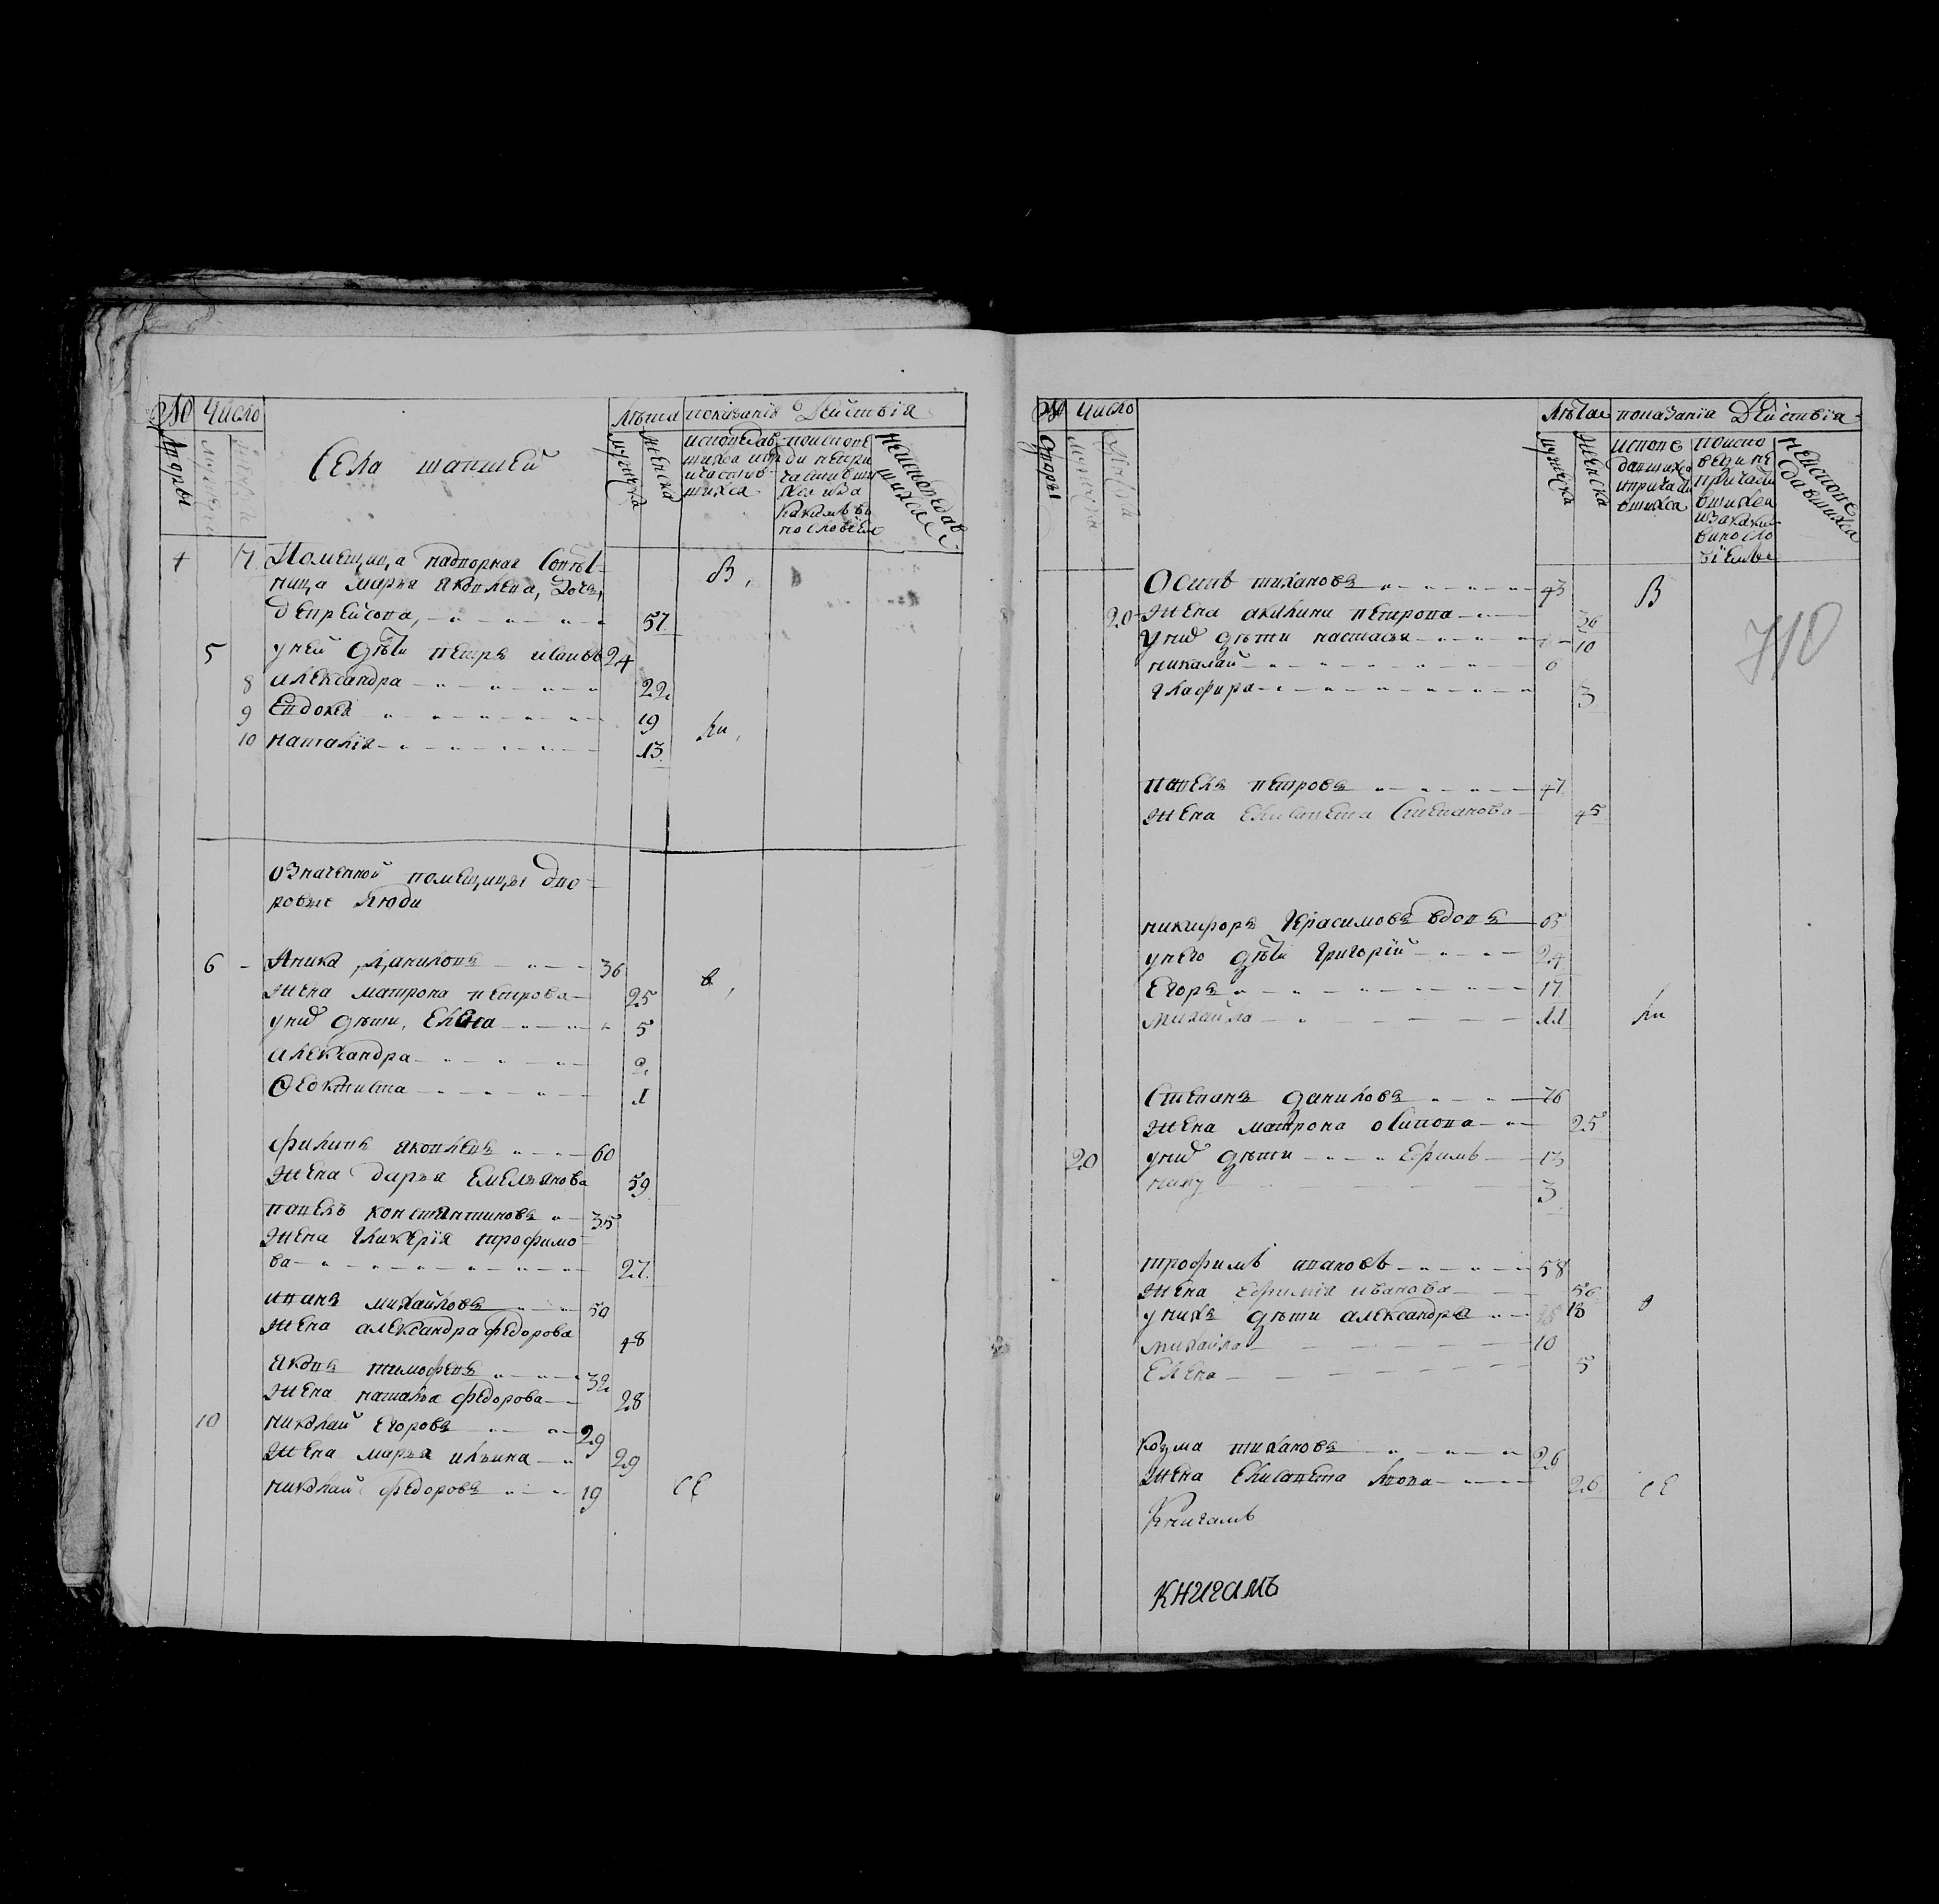 № Число Лѣта показанiе Действiя
Дворы
мужеска
женска
исповѣдав
шихся ипри
частив
шихся
поиспове
ди непри
частивши
хся иза
какимъ ви
нословiем
неисповедав
шихся
Села
+ 7 Помещица надворная Совѣт
ница марья яковлева, Дочь,
57
5 уней дѣти петръ иванов 24
8 александра 22
9 Евдокея 19
10 наталiя 13
В,
ли,
Означенной помещицы дво
ровые люди
6 - Аника Даниловъ 36
жена матрона петрова 25
в,
унихъ дѣти, Елена 5
александра 2
Феоктиста 1
филипъ яковлевъ 60
жена дарья Емельянова 59
павелъ константиновъ 35
жена гликерiя трофимо
ва 27
иванъ михайловъ 50
жена александра федорова 48
яковъ тимофевъ 32
жена наталья федорова 28
10 николай Егоровъ 29
жена марья ильина 29
николай федоровъ 19
се
№ Число Лѣта показанiя Действiя
Дворы
мужеска
женска
испове
давшихся
иприча
вшихся
поиспо
ведине
причаст
вшихся
изакаким
винос ло
вiемъ
неиспове
давшихся
Осипъ тихановъ 43
В
20 жена акилина петрова 36
унихъ дѣти настасья 10
николай 6
глафира 3
710
павелъ петровъ 47
жена Елисавета Степанова 45
никифоръ Герасимовъ вдовъ 65
унего дѣти Григорiй 24
Егоръ 17
михайла 11
ли
Степанъ даниловъ 26
жена матрона осипова 25
20 унихъ дѣти Ефимъ 13
3
трофимъ ивановъ 58
жена Ефимiя иванова 56
унихъ дѣти александръ 15
михайло 10
Елена 5
Козма тихановъ 26
жена Елисавета львова 26
се
Книгамъ
книгамъ